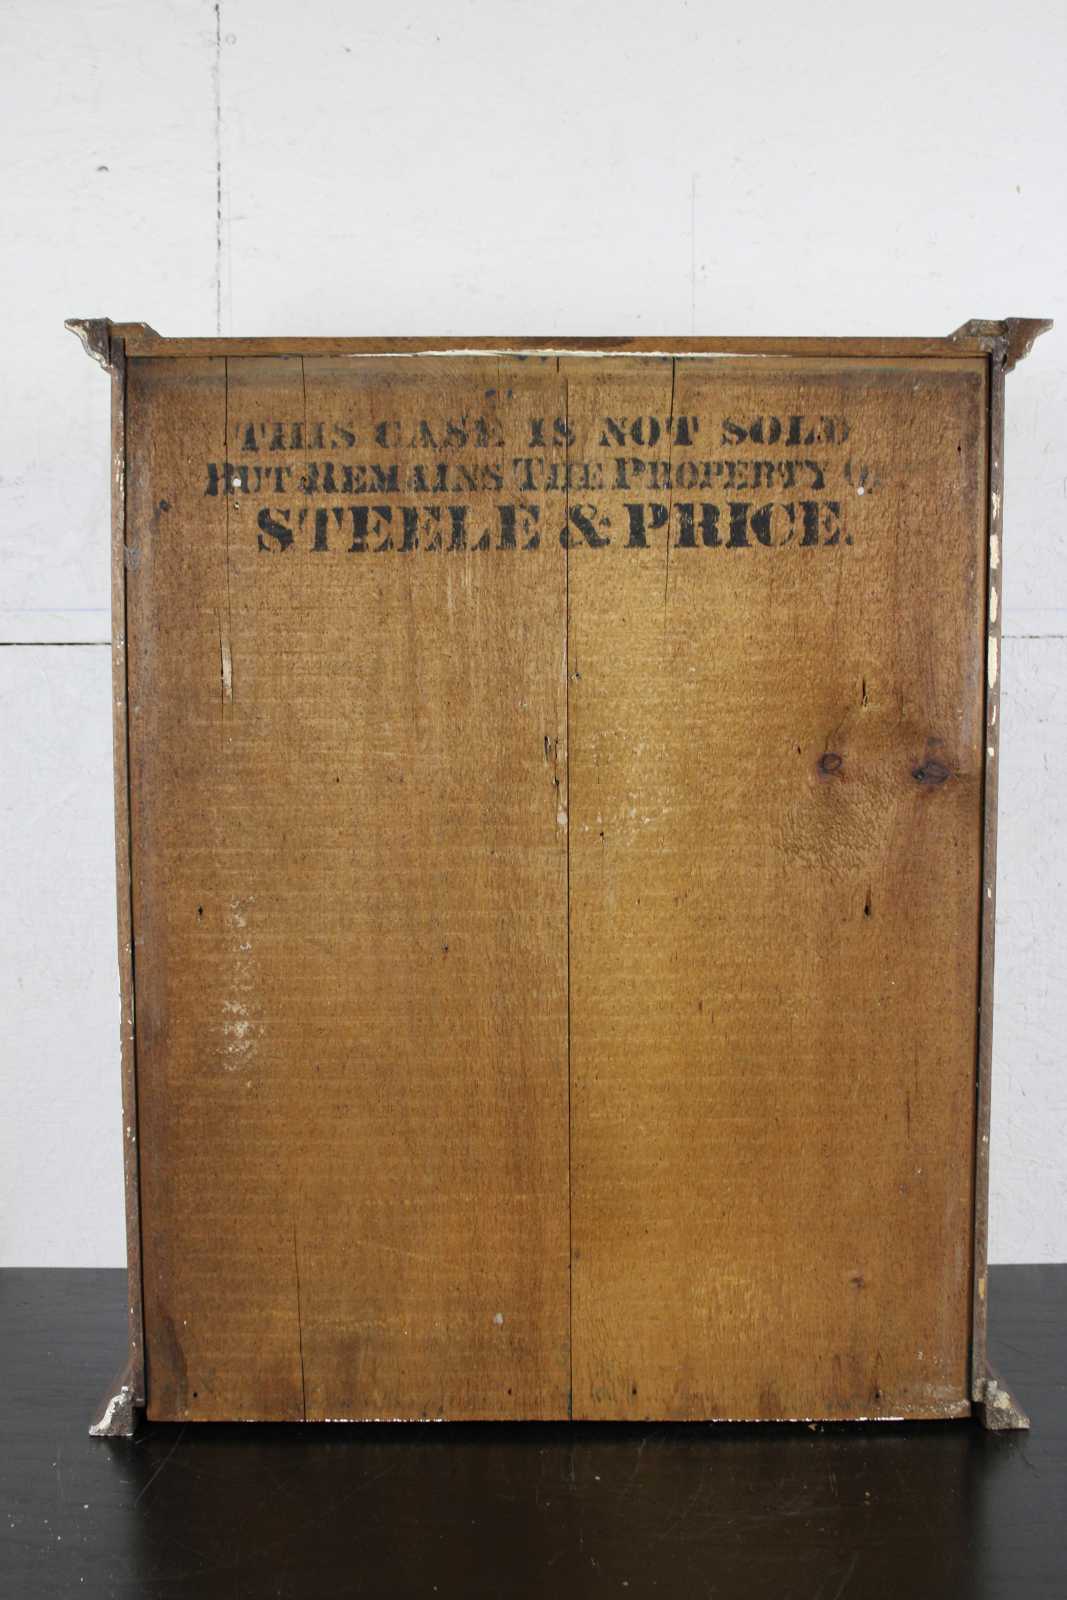 THIS CASE IS NOT SOLD
BUT REMAINS THE PROPERTY O
STEELE & PRICE.